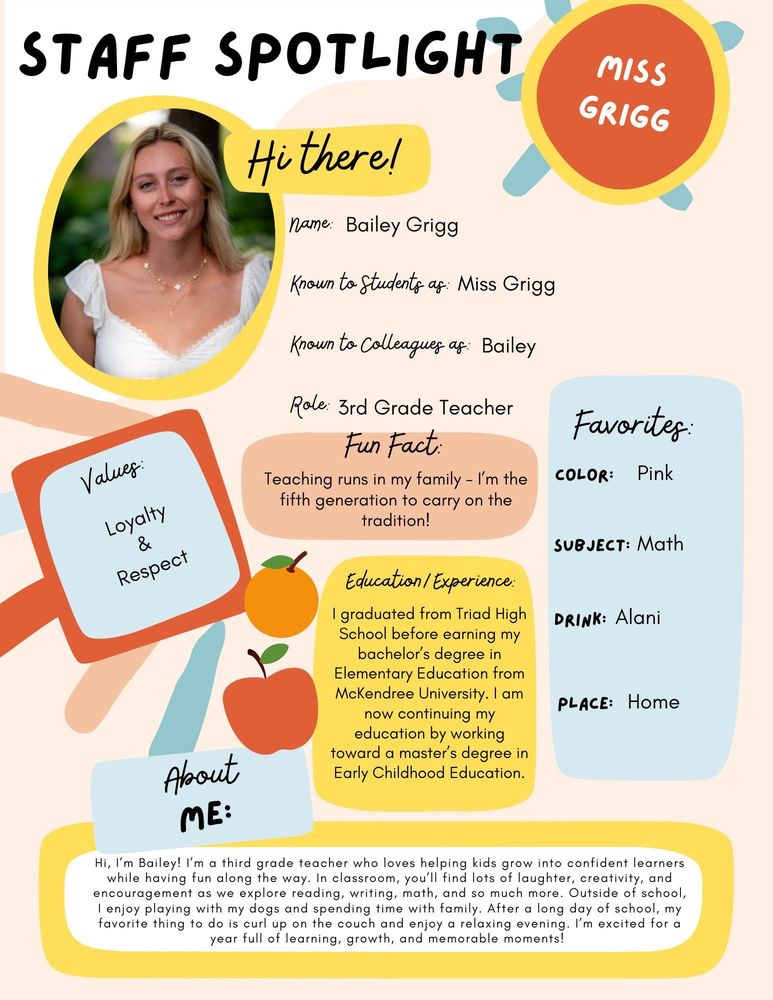 STAFF SPOTLIGHT
MISS
GRIGG
Hi there!
Name: Bailey Grigg
Known to Students as: Miss Grigg
Known to Colleagues as: Bailey
Role: 3rd Grade Teacher
Fun Fact:
Teaching runs in my family - I'm the
fifth generation to carry on the
tradition!
Values:
Loyalty
&
Respect
Favorites:
COLOR: Pink
SUBJECT: Math
DRINK: Alani
PLACE: Home
Education/Experience:
I graduated from Triad High
School before earning my
bachelor's degree in
Elementary Education from
McKendree University. I am
now continuing my
education by working
toward a master's degree in
Early Childhood Education.
About
ME:
Hi, I'm Bailey! I'm a third grade teacher who loves helping kids grow into confident learners
while having fun along the way. In classroom, you'll find lots of laughter, creativity, and
encouragement as we explore reading, writing, math, and so much more. Outside of school,
I enjoy playing with my dogs and spending time with family. After a long day of school, my
favorite thing to do is curl up on the couch and enjoy a relaxing evening. I'm excited for a
year full of learning, growth, and memorable moments!